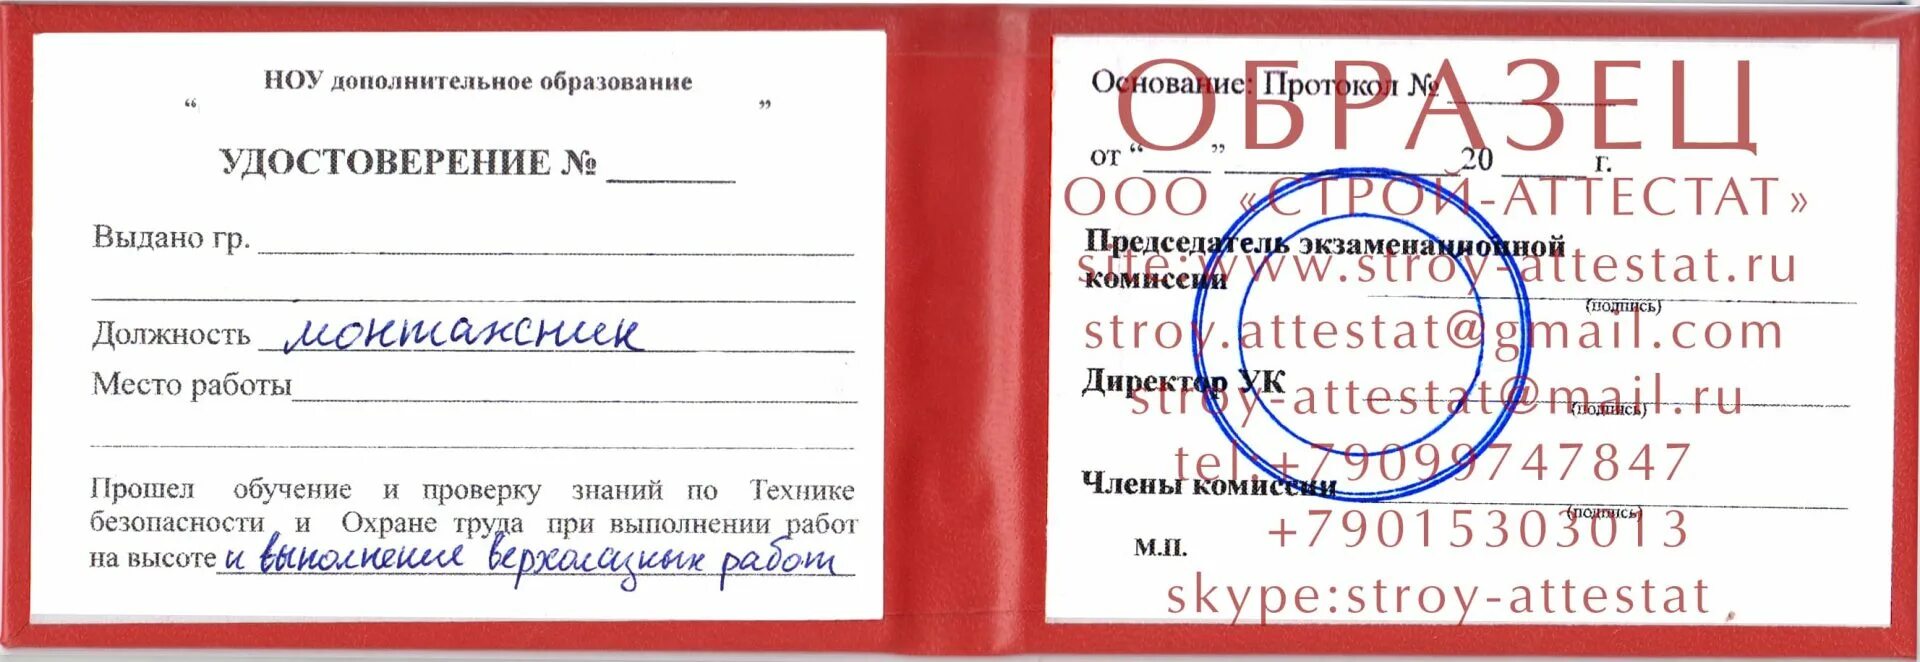 НОУ дополнительное образование
“ ”
УДОСТОВЕРЕНИЕ № ______
Выдано гр.
Должность монтажник
Место работы
Прошел обучение и проверку знаний по Технике
безопасности и Охране труда при выполнении работ
на высоте и выполнение верхолазных работ
Основание: Протокол № ______
от “____” ____________ 20 ____ г.
Председатель экзаменационной
комиссии
(подпись)
Директор УК
(подпись)
Члены комиссии
(подпись)
М.П.
ОБРАЗЕЦ
ООО «СТРОЙ-АТТЕСТАТ»
site:www.stroy-attestat.ru
stroy.attestat@gmail.com
stroy-attestat@mail.ru
tel:+79099747847
+79015303013
skype:stroy-attestat